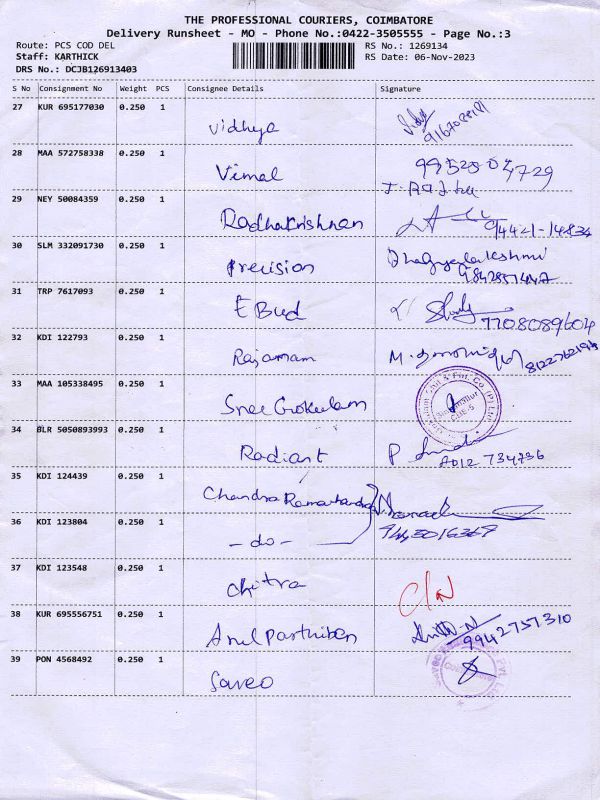 THE PROFESSIONAL COURIERS, COIMBATORE
Delivery Runsheet - MO - Phone No.:0422-3505555 - Page No.:3
Route: PCS COD DEL RS No.: 1269134
Staff: KARTHICK RS Date: 06-Nov-2023
DRS No.: DCJB126913403
S No Consignment No Weight PCS Consignee Details Signature
27 KUR 695177030 0.250 1
Vidhya
28 MAA 572758338 0.250 1
Vimal
29 NEY 50084359 0.250 1
Radhakrishnan
30 SLM 332091730 0.250 1
Precision Bhagyalakshmi
31 TRP 7617093 0.250 1
EBud 7708089604
32 KDI 122793 0.250 1
Rajamam
33 MAA 105338495 0.250 1
Sree Gokulam
34 BLR 5050893993 0.250 1
Radiant P
35 KDI 124439 0.250 1
Chandra Ramachandra
36 KDI 123804 0.250 1
- do -
37 KDI 123548 0.250 1
Chitra
38 KUR 695556751 0.250 1
Arul Parthiban 9942757310
39 PON 4568492 0.250 1
Saveo